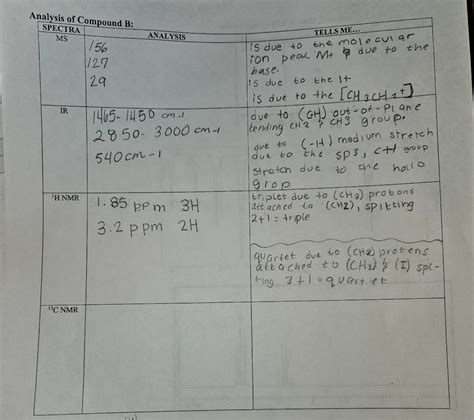 Analysis of Compound B:
SPECTRA ANALYSIS TELLS ME...
MS
156
127
29
is due to the molecular
ion peak M+ & due to the
base.
is due to the I+
is due to the [CH3CH2+]
IR
1465-1450 cm-1
2850-3000 cm-1
540 cm-1
due to (CH) out-of-plane
bending CH2 & CH3 group.
due to (-H) medium stretch
due to the sp3, C-H group
stratch due to the hallo
grop
¹H NMR
1.85 ppm 3H
3.2 ppm 2H
triplet due to (CH3) protons
attached to (CH2), spitting
2+1 = triple
quartet due to (CH2) protens
attached to (CH3) & (I) spli-
ting 3+1 = quartet
¹³C NMR